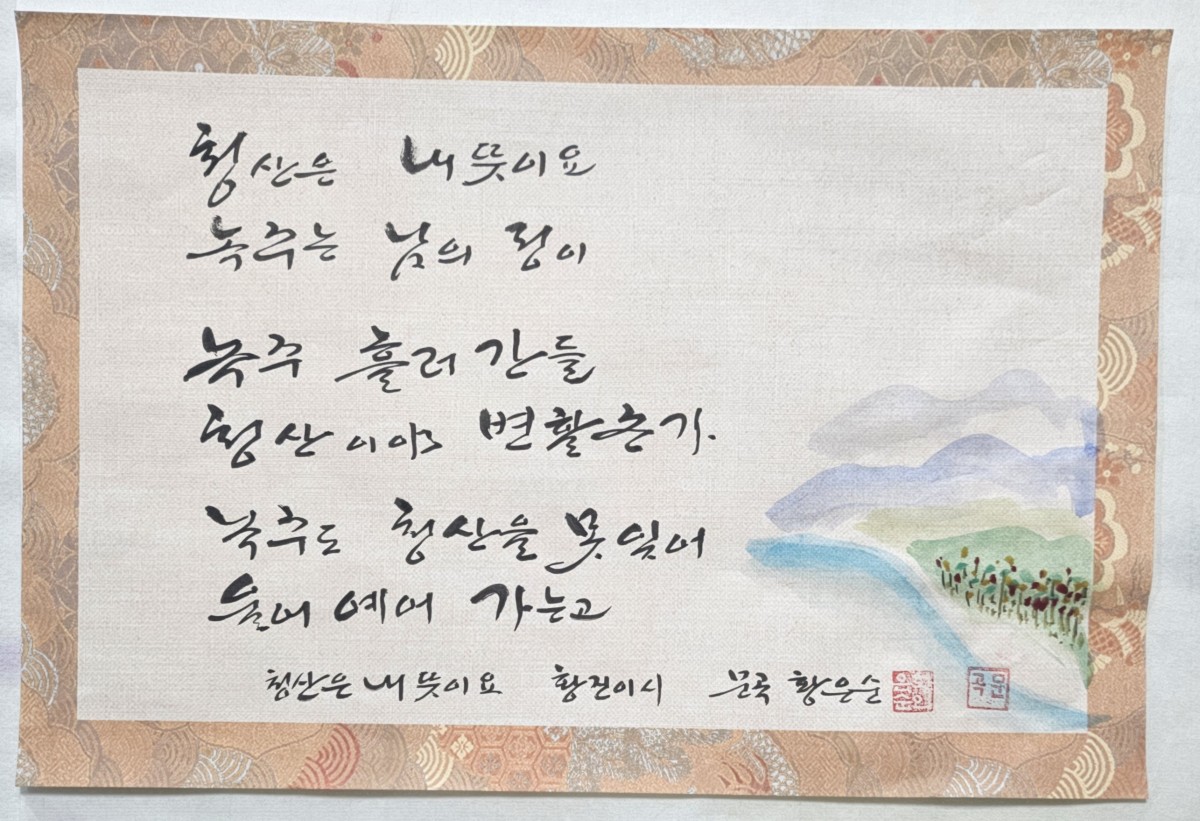 청산은 내 뜻이요
녹수는 님의 정이
녹수 흘러 간들
청산이야 변할손가.
녹수도 청산을 못잊어
울어 예어 가는고
청산은 내 뜻이요 황진이 시 문곡 황은순
문곡